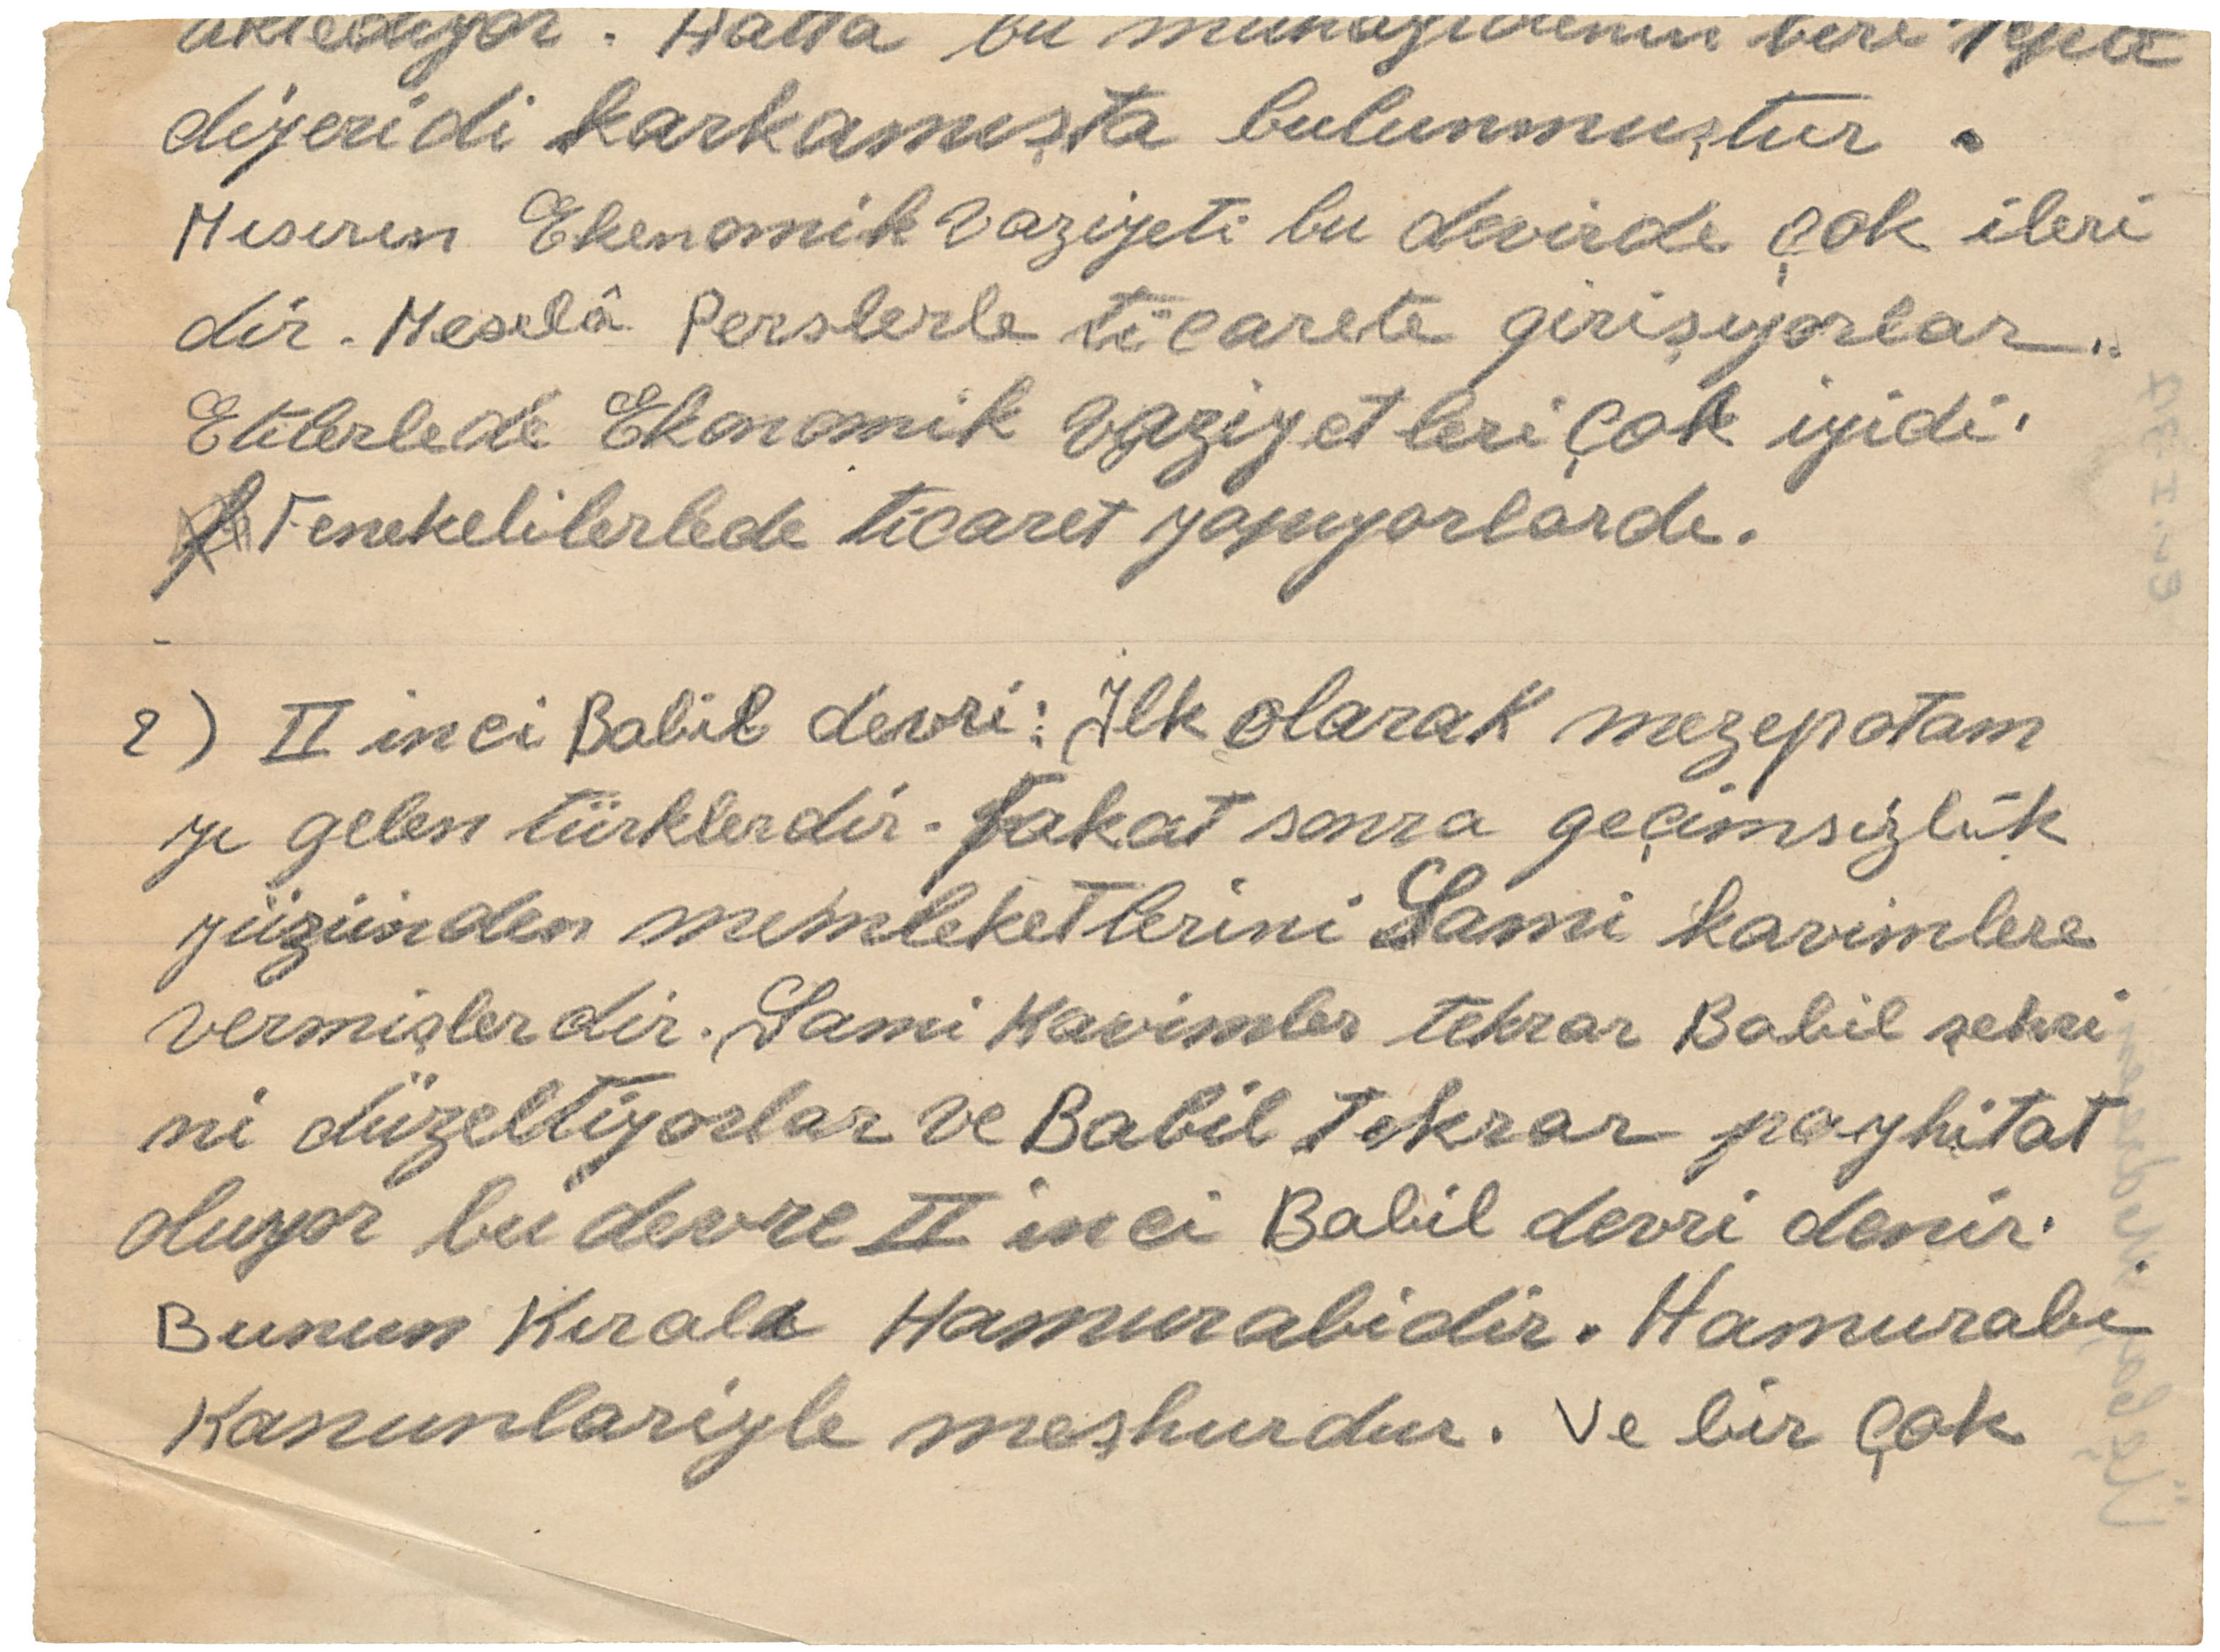 aktediyor. Hatta bu muhayidenin beri Tepte
diyeridi karkamışta bulunmuştur.
Mısırın Ekenomik vaziyeti bu devirde çok ileri
dir. Meselâ Perslerle ticarete girişiyorlar..
Etilerlede Ekonomik vaziyetleri çok iyidi.
Fenekelilerlede ticaret yapıyorlarde.
2) II inci Babil devri: İlk olarak mezepotam
ye gelen türklerdir. Fakat sonra geçimsizlik
yüzünden memleketlerini Sami kavimlere
vermişlerdir. Sami Kavimler tekrar Babil şehri
ni düzeltiyorlar ve Babil Tekrar payhitat
oluyor bu devre II inci Babil devri denir.
Bunun Kıralı Hamurabidir. Hamurabi
Kanunlariyle meşhurdur. Ve bir çok